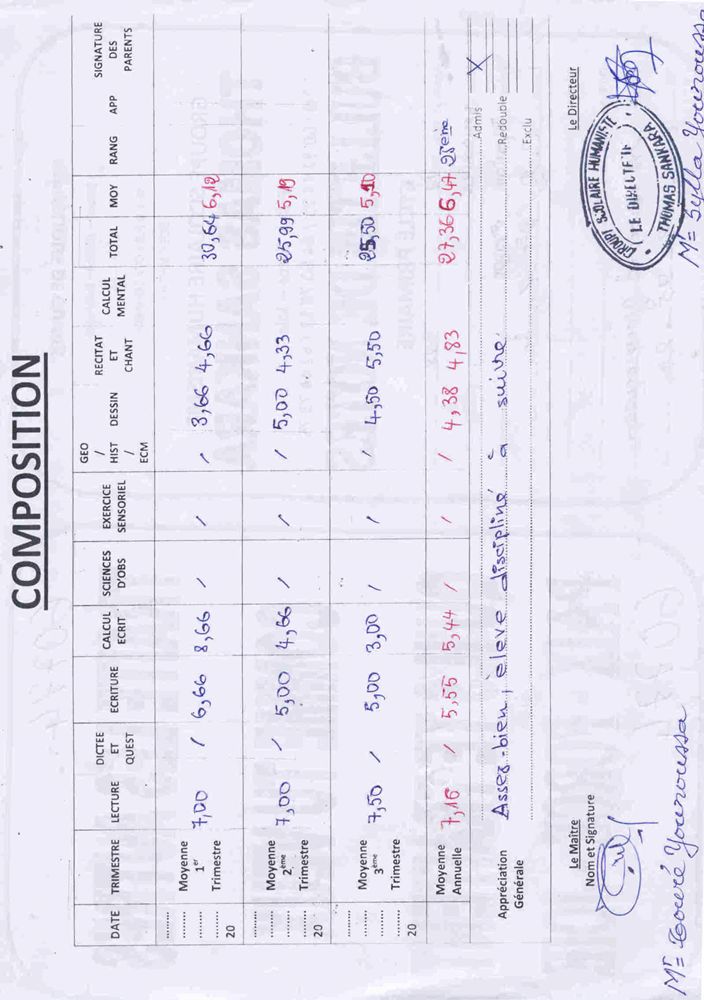 COMPOSITION
DATE TRIMESTRE LECTURE DICTEE ET QUEST ECRITURE CALCUL ECRIT SCIENCES D'OBS EXERCICE SENSORIEL GEO / HIST / ECM DESSIN RECITAT ET CHANT CALCUL MENTAL TOTAL MOY RANG APP SIGNATURE DES PARENTS
20 Moyenne 1er Trimestre 7,00 / 6,66 8,66 / / / 3,66 4,66 30,64 6,12
20 Moyenne 2ème Trimestre 7,00 / 5,00 4,66 / / / 5,00 4,33 25,99 5,19
20 Moyenne 3ème Trimestre 7,50 / 5,00 3,00 / / / 4,50 5,50 25,50 5,10
Moyenne Annuelle 7,16 / 5,55 5,44 / / / 4,38 4,83 27,36 5,47 28ème
Appréciation Générale Assez-bien, élève discipliné à suivre.
Admis X
Redouble
Exclu
Le Maître
Nom et Signature
Le Directeur
GROUPE SCOLAIRE HUMANISTE
LE DIRECTEUR
THOMAS SANKARA
Mr= Touré Younoussa
Mr= Sylla Younoussa